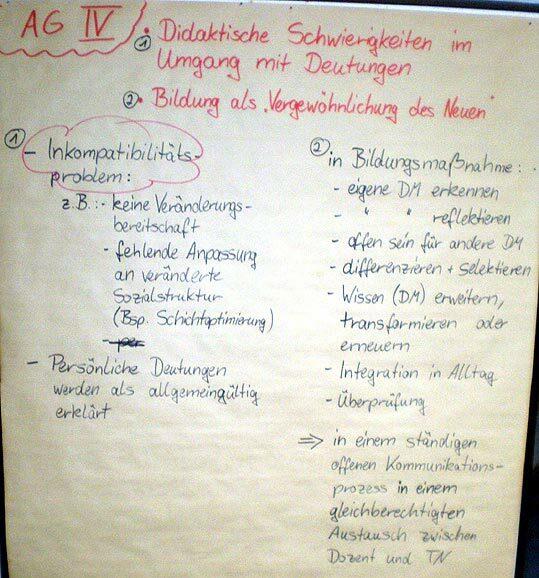 AG IV
① • Didaktische Schwierigkeiten im
Umgang mit Deutungen
② • Bildung als „Vergewöhnlichung des Neuen"
①
- Inkompatibilitäts-
problem:
z.B.:- keine Veränderungs-
bereitschaft
- fehlende Anpassung
an veränderte
Sozialstruktur
(Bsp. Schichtoptimierung)
- Persönliche Deutungen
werden als allgemeingültig
erklärt
② in Bildungsmaßnahme:
- eigene DM erkennen
- " " reflektieren
- offen sein für andere DM
- differenzieren + selektieren
- Wissen (DM) erweitern,
transformieren oder
erneuern
- Integration in Alltag
- Überprüfung
⇒ in einem ständigen
offenen Kommunikations-
prozess in einem
gleichberechtigten
Austausch zwischen
Dozent und TN